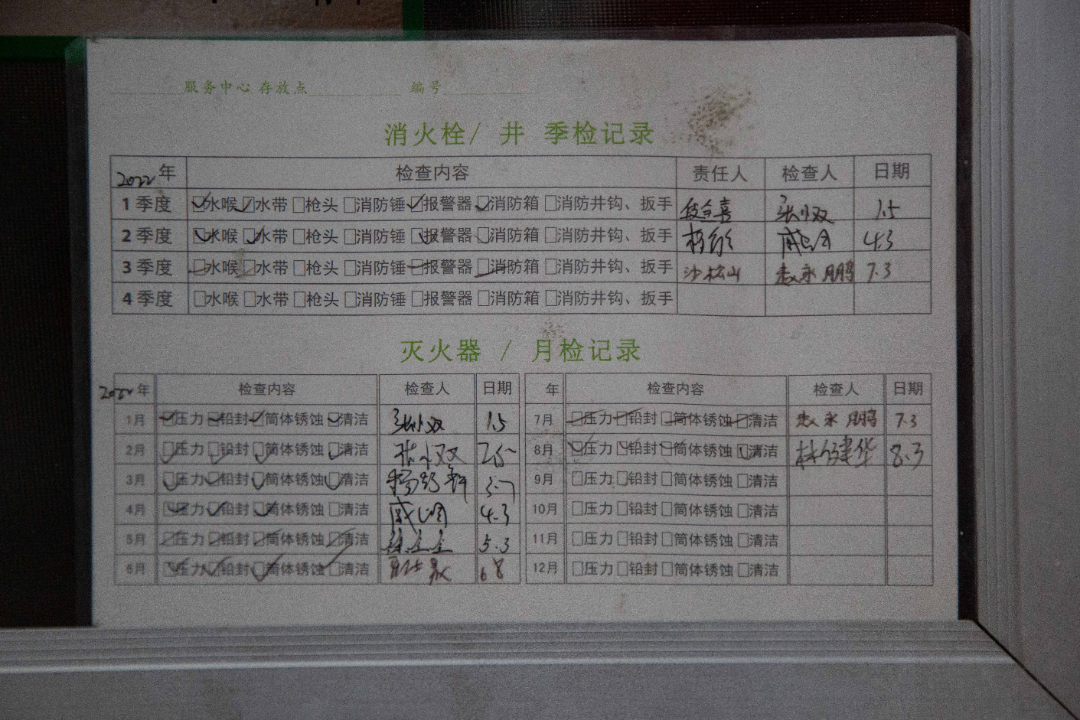 服务中心 存放点 编号
消火栓/ 井 季检记录
2022年 检查内容 责任人 检查人 日期
1 季度 水喉 水带 枪头 消防锤 报警器 消防箱 消防井钩、扳手 1.5
2 季度 水喉 水带 枪头 消防锤 报警器 消防箱 消防井钩、扳手 4.3
3 季度 水喉 水带 枪头 消防锤 报警器 消防箱 消防井钩、扳手 沙松山 7.3
4 季度 水喉 水带 枪头 消防锤 报警器 消防箱 消防井钩、扳手
灭火器 / 月检记录
2022年 检查内容 检查人 日期 年 检查内容 检查人 日期
1月 压力 铅封 筒体锈蚀 清洁 1.5 7月 压力 铅封 筒体锈蚀 清洁 7.3
2月 压力 铅封 筒体锈蚀 清洁 8月 压力 铅封 筒体锈蚀 清洁 8.3
3月 压力 铅封 筒体锈蚀 清洁 9月 压力 铅封 筒体锈蚀 清洁
4月 压力 铅封 筒体锈蚀 清洁 4.3 10月 压力 铅封 筒体锈蚀 清洁
5月 压力 铅封 筒体锈蚀 清洁 5.3 11月 压力 铅封 筒体锈蚀 清洁
6月 压力 铅封 筒体锈蚀 清洁 12月 压力 铅封 筒体锈蚀 清洁